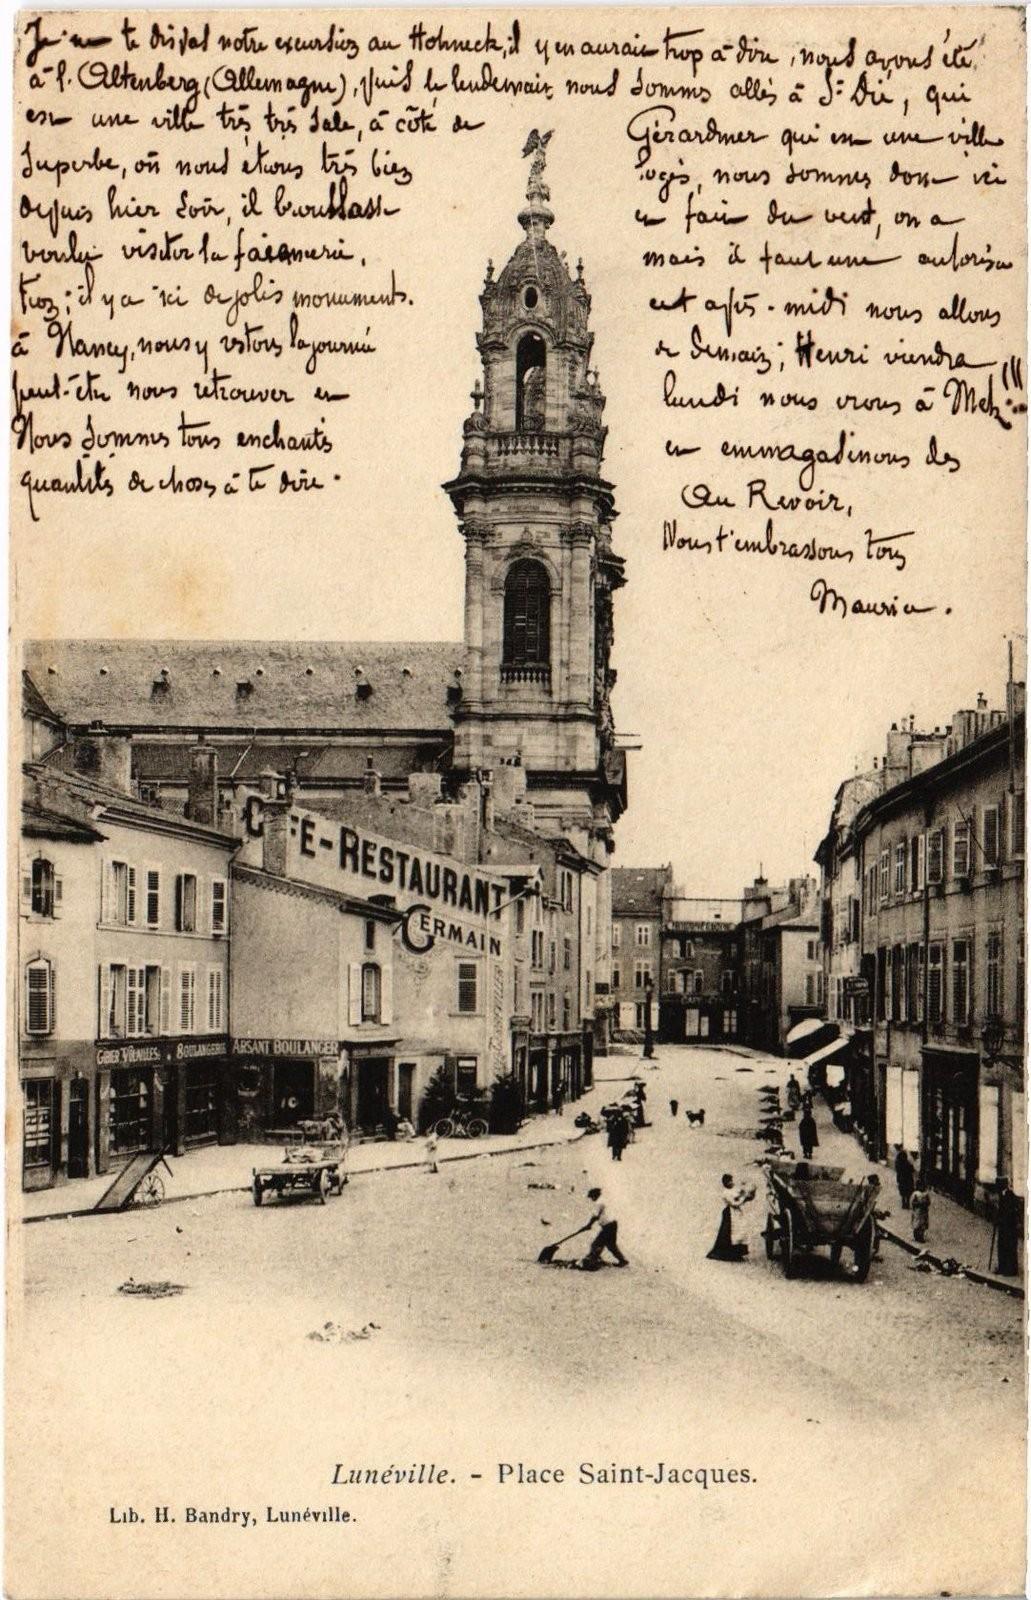 Je ne te dis pas notre excursion au Hohneck, il y en aurait trop à dire, nous avons été
à l'Altenberg, (Allemagne), puis le lendemain nous sommes allés à St Dié, qui
est une ville très très sale, à côté de Gérardmer qui est une ville
superbe, où nous étions très bien logés, nous sommes donc ici
depuis hier soir, il brouillasse et fait du vent, on a
voulu visiter la faïencerie, mais il faut une autorisa
tion; il y a ici de jolis monuments. cet après-midi nous allons
à Nancy, nous y restons la journée de demain; Henri viendra
peut-être nous retrouver et lundi nous irons à Metz!!!
Nous sommes tous enchantés et emmagasinons des
quantités de choses à te dire. Au Revoir,
Nous t'embrassons tous
Maurice.
CAFÉ-RESTAURANT
GERMAIN
GIBIER VOLAILLES
BOULANGERIE
ARSANT BOULANGER
CAFÉ
Lunéville. - Place Saint-Jacques.
Lib. H. Bandry, Lunéville.